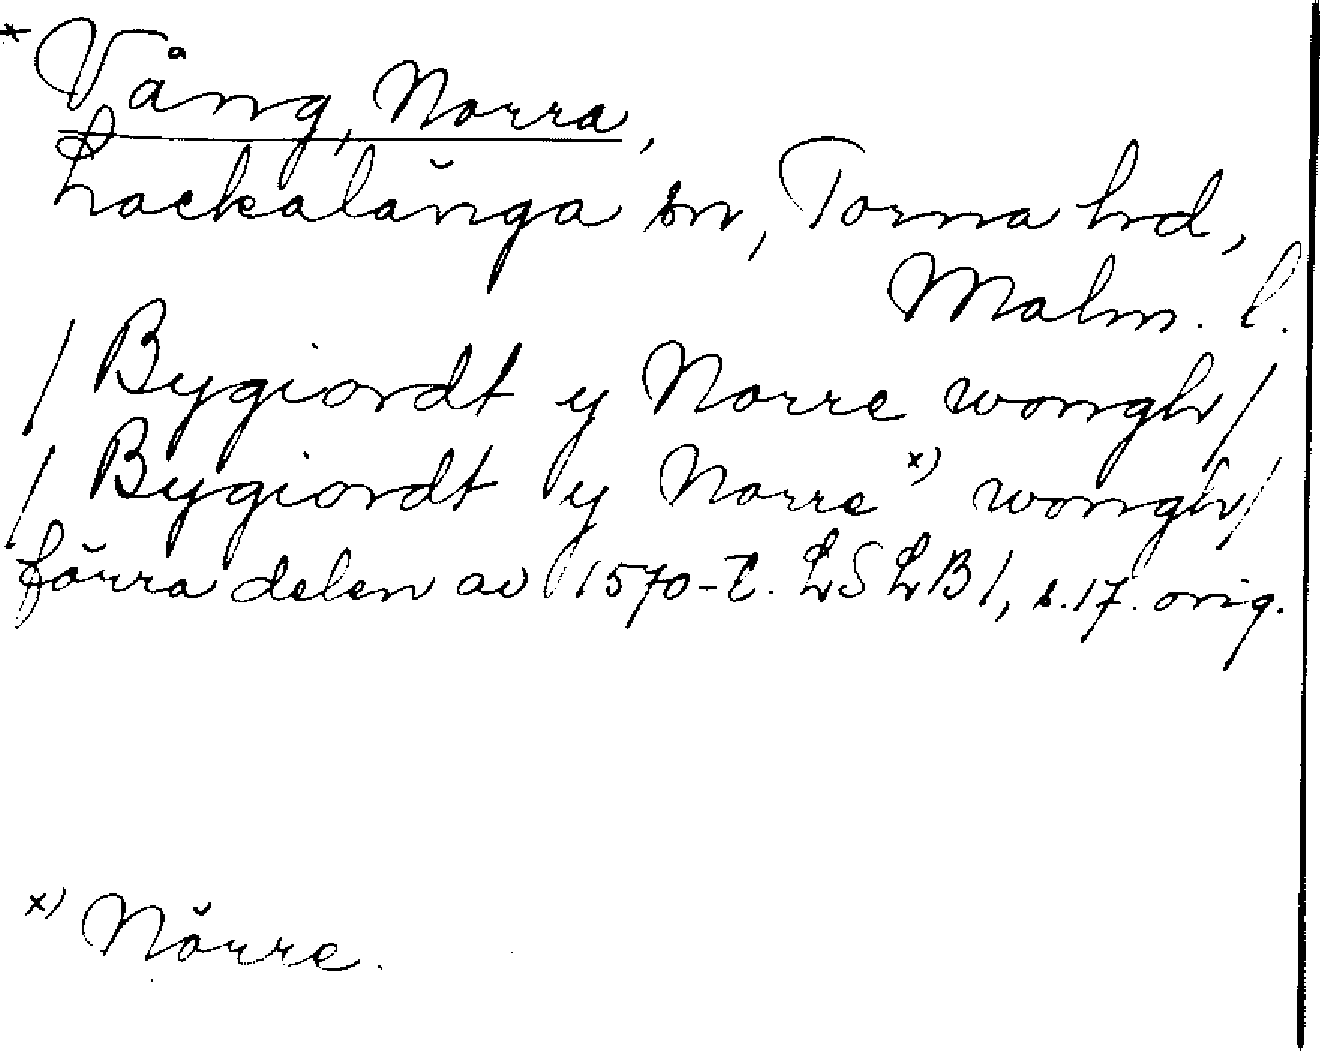 * Vång, Norra,
Lackalänga sn, Torna hd,
Malm. l.
/ Bygiordt y Norre wongh /
/ Bygiordt y Norre x) wongh /
förra delen av 1570-t. LSLB 1, s. 17. orig.
x) Nörre.